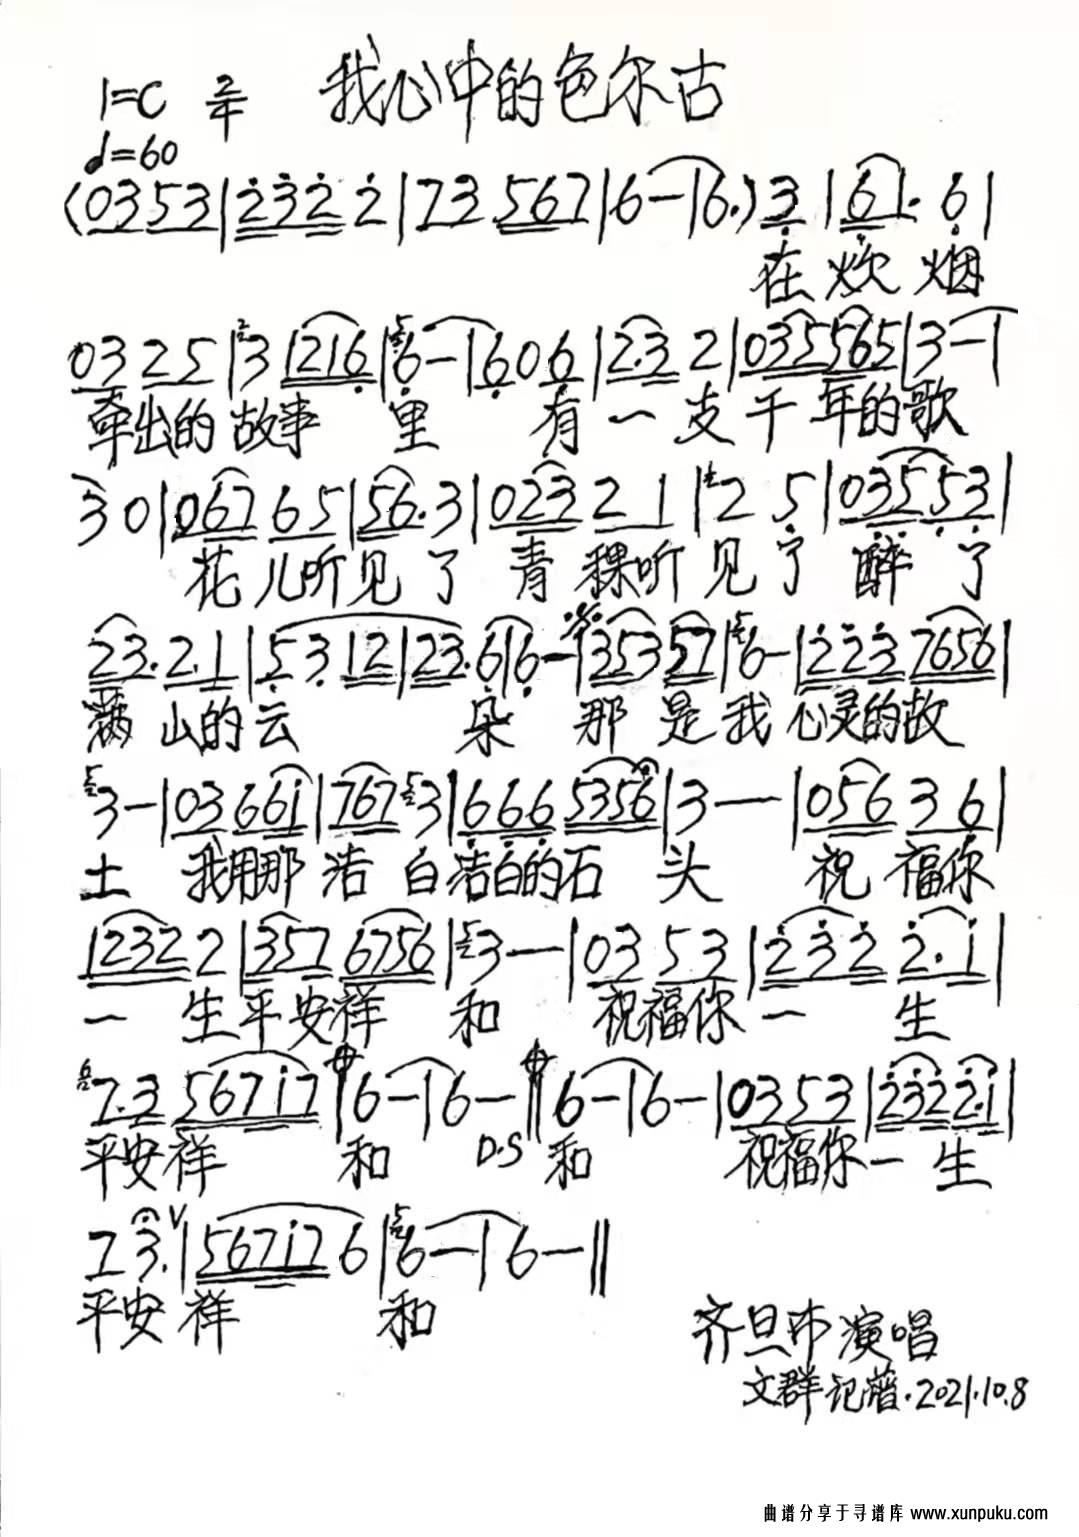 我心中的色尔古
1=C 2/4
♩=60
(0353|2̇3̇2̇ 2̇|73 567|6-|6·)3|61· 6|
在炊烟
03 25|3 1216|6-|606|2·3 2|035565|3-|
牵出的故事 里 有一支千年的歌
30|067 65|56·3|023 21|2 5|03553|
花儿听见了 青稞听见了 醉了
23·2·1|53 12|23·6|6-|353 57|6-|2̇2̇3̇ 7656|
满山的云 朵 那是我心灵的故
3-|03 661̇|767 3|666 5356|3--|056 36|
土 我用那洁白洁白的石头 祝福你
1232 2|357 6756|3-|03 53|2̇3̇2̇ 2̇·1̇|
一生平安祥和 祝福你一生
7·3 5671̇7|6-|6-‖6-|6-|0353|2̇3̇2̇2̇·1̇|
平安祥 和 D.S 和 祝福你一生
7 3·V|5671̇7 6|6-|6-‖
平安祥 和
齐旦布演唱
文群记谱·2021.10.8
曲谱分享于寻谱库 www.xunpuku.com